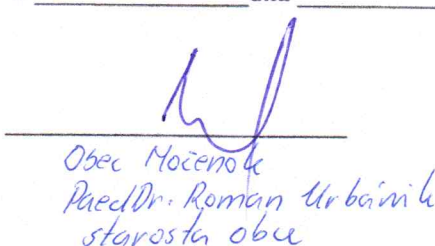 Obec Močenok
PaedDr. Roman Urbánik
starosta obce